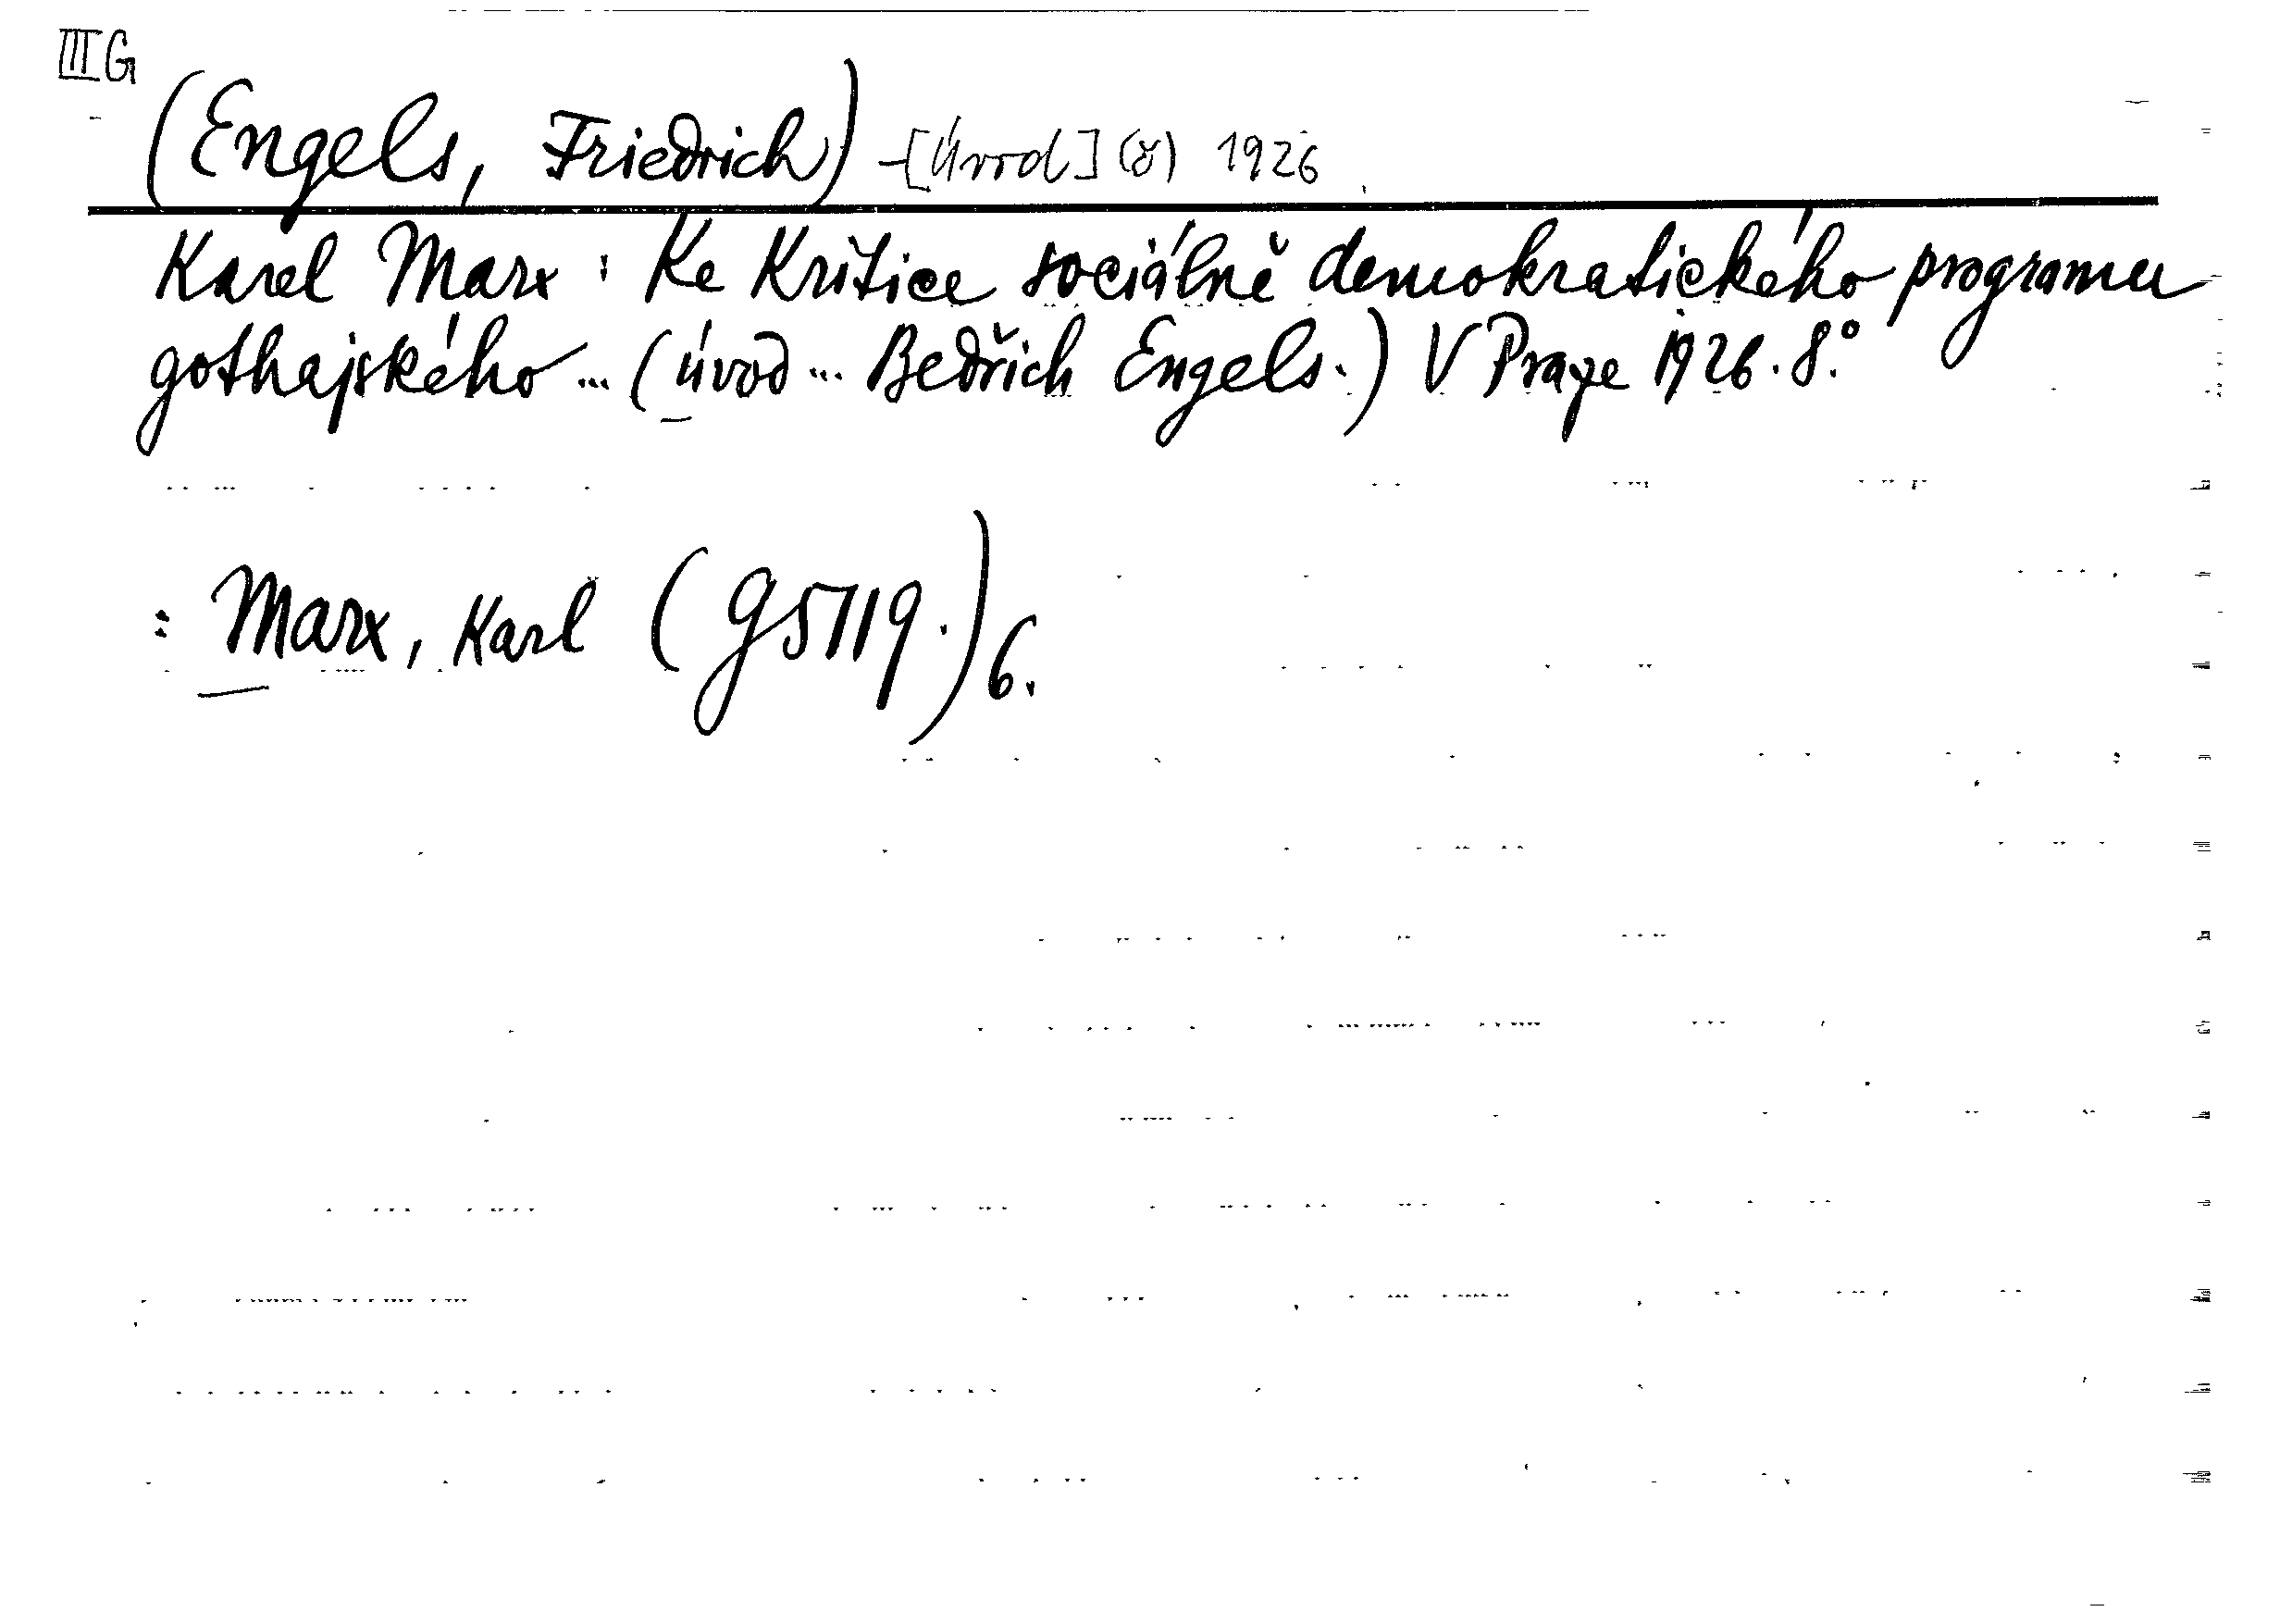 III G
(Engels, Friedrich) - [Úvod] (8) 1926
Karel Marx : Ke Kritice sociálně demokratického programu
gothajského ... (úvod ... Bedřich Engels.) V Praze 1926. 8.°
: Marx, Karl (G 5719.) 6.